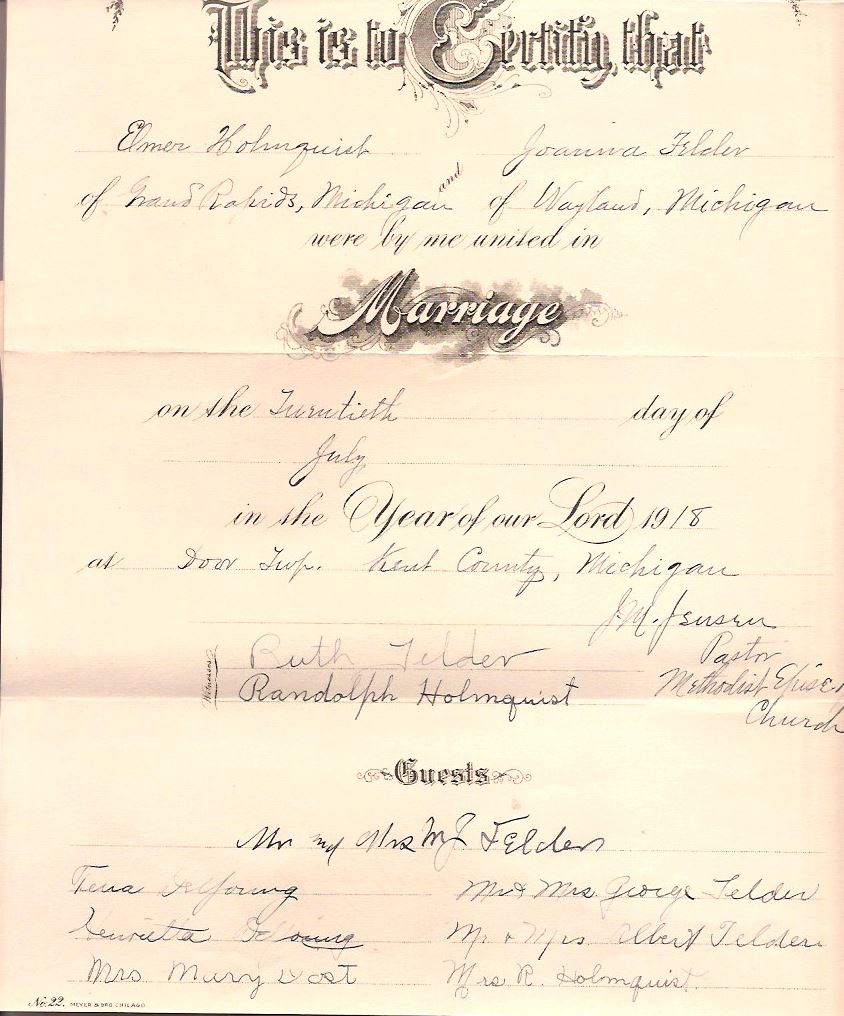 This is to Certify, that
Elmer Holmquist and Joanna Felder
of Grand Rapids, Michigan of Wayland, Michigan
were by me united in
Marriage
on the Twentieth day of
July
in the Year of our Lord 1918
at Door Twp. Kent County, Michigan
J.M. Jensen
Pastor
Methodist Episc
Church
Witnesses
Ruth Felder
Randolph Holmquist
Guests
Mr and Mrs M J Felder
Tena DeYoung Mr & Mrs. George Felder
Henrietta DeYoung Mr & Mrs Albert Felder
Mrs Mary Mrs R. Holmquist
No. 22. MEYER & BRO. CHICAGO